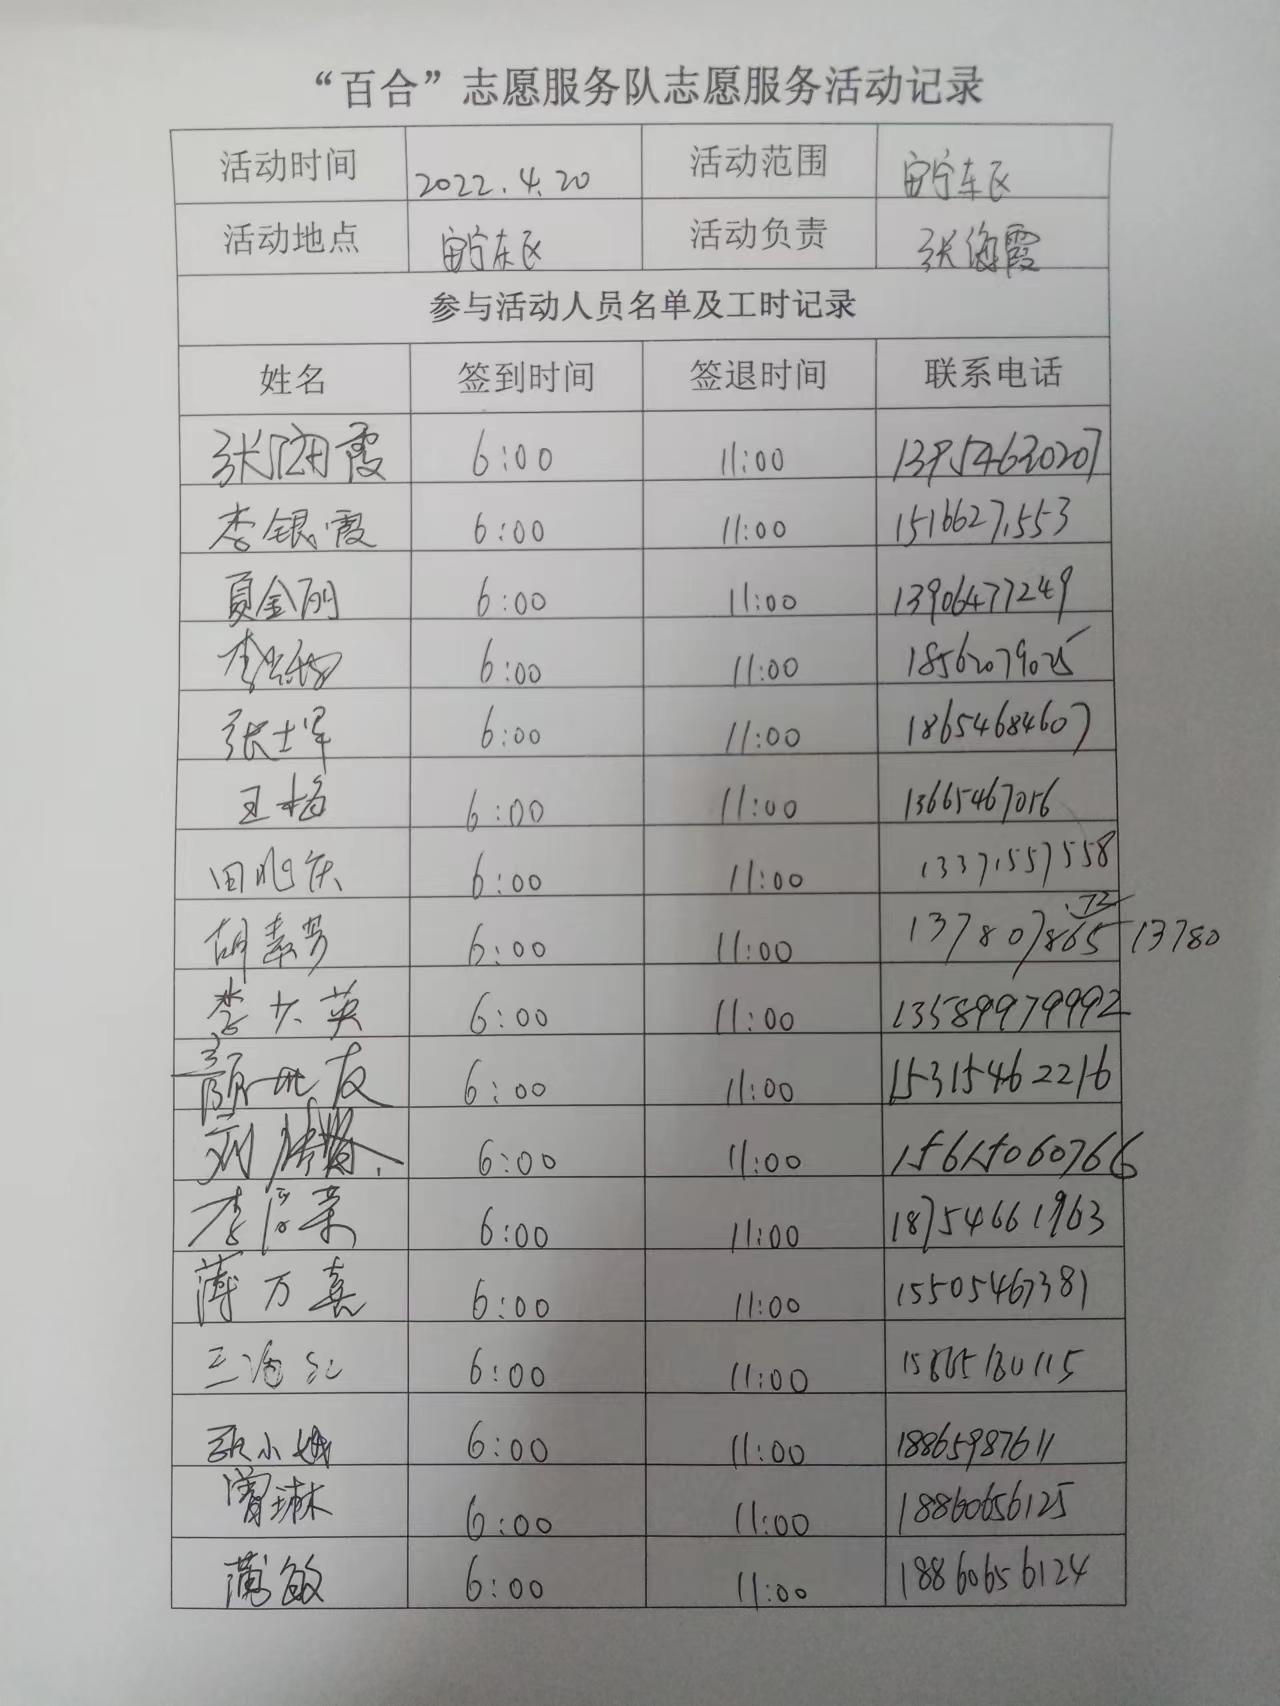 “百合”志愿服务队志愿服务活动记录
活动时间 2022.4.20 活动范围 宙宁东区
活动地点 宙宁东区 活动负责 张海霞
参与活动人员名单及工时记录
姓名 签到时间 签退时间 联系电话
张海霞 6:00 11:00 13954630207
李银霞 6:00 11:00 15166271553
夏金丽 6:00 11:00 13906477249
李 6:00 11:00 18562079025
张士军 6:00 11:00 18654684607
王梅 6:00 11:00 13665467056
田 庆 6:00 11:00 13371557558
胡素芳 6:00 11:00 13780
李大英 6:00 11:00 13589979992
颜世友 6:00 11:00 15315462216
刘 6:00 11:00 15615060766
李 荣 6:00 11:00 18754661963
薄万喜 6:00 11:00 15505467381
王 红 6:00 11:00
小娥 6:00 11:00 18865987611
曾琳 6:00 11:00 18860656125
蒲敏 6:00 11:00 18860656124